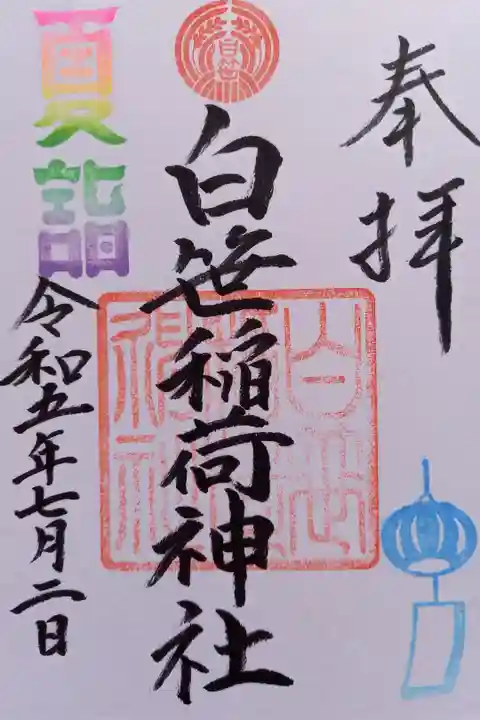 奉拝
白笹
白笹稲荷神社
夏詣
令和五年七月二日